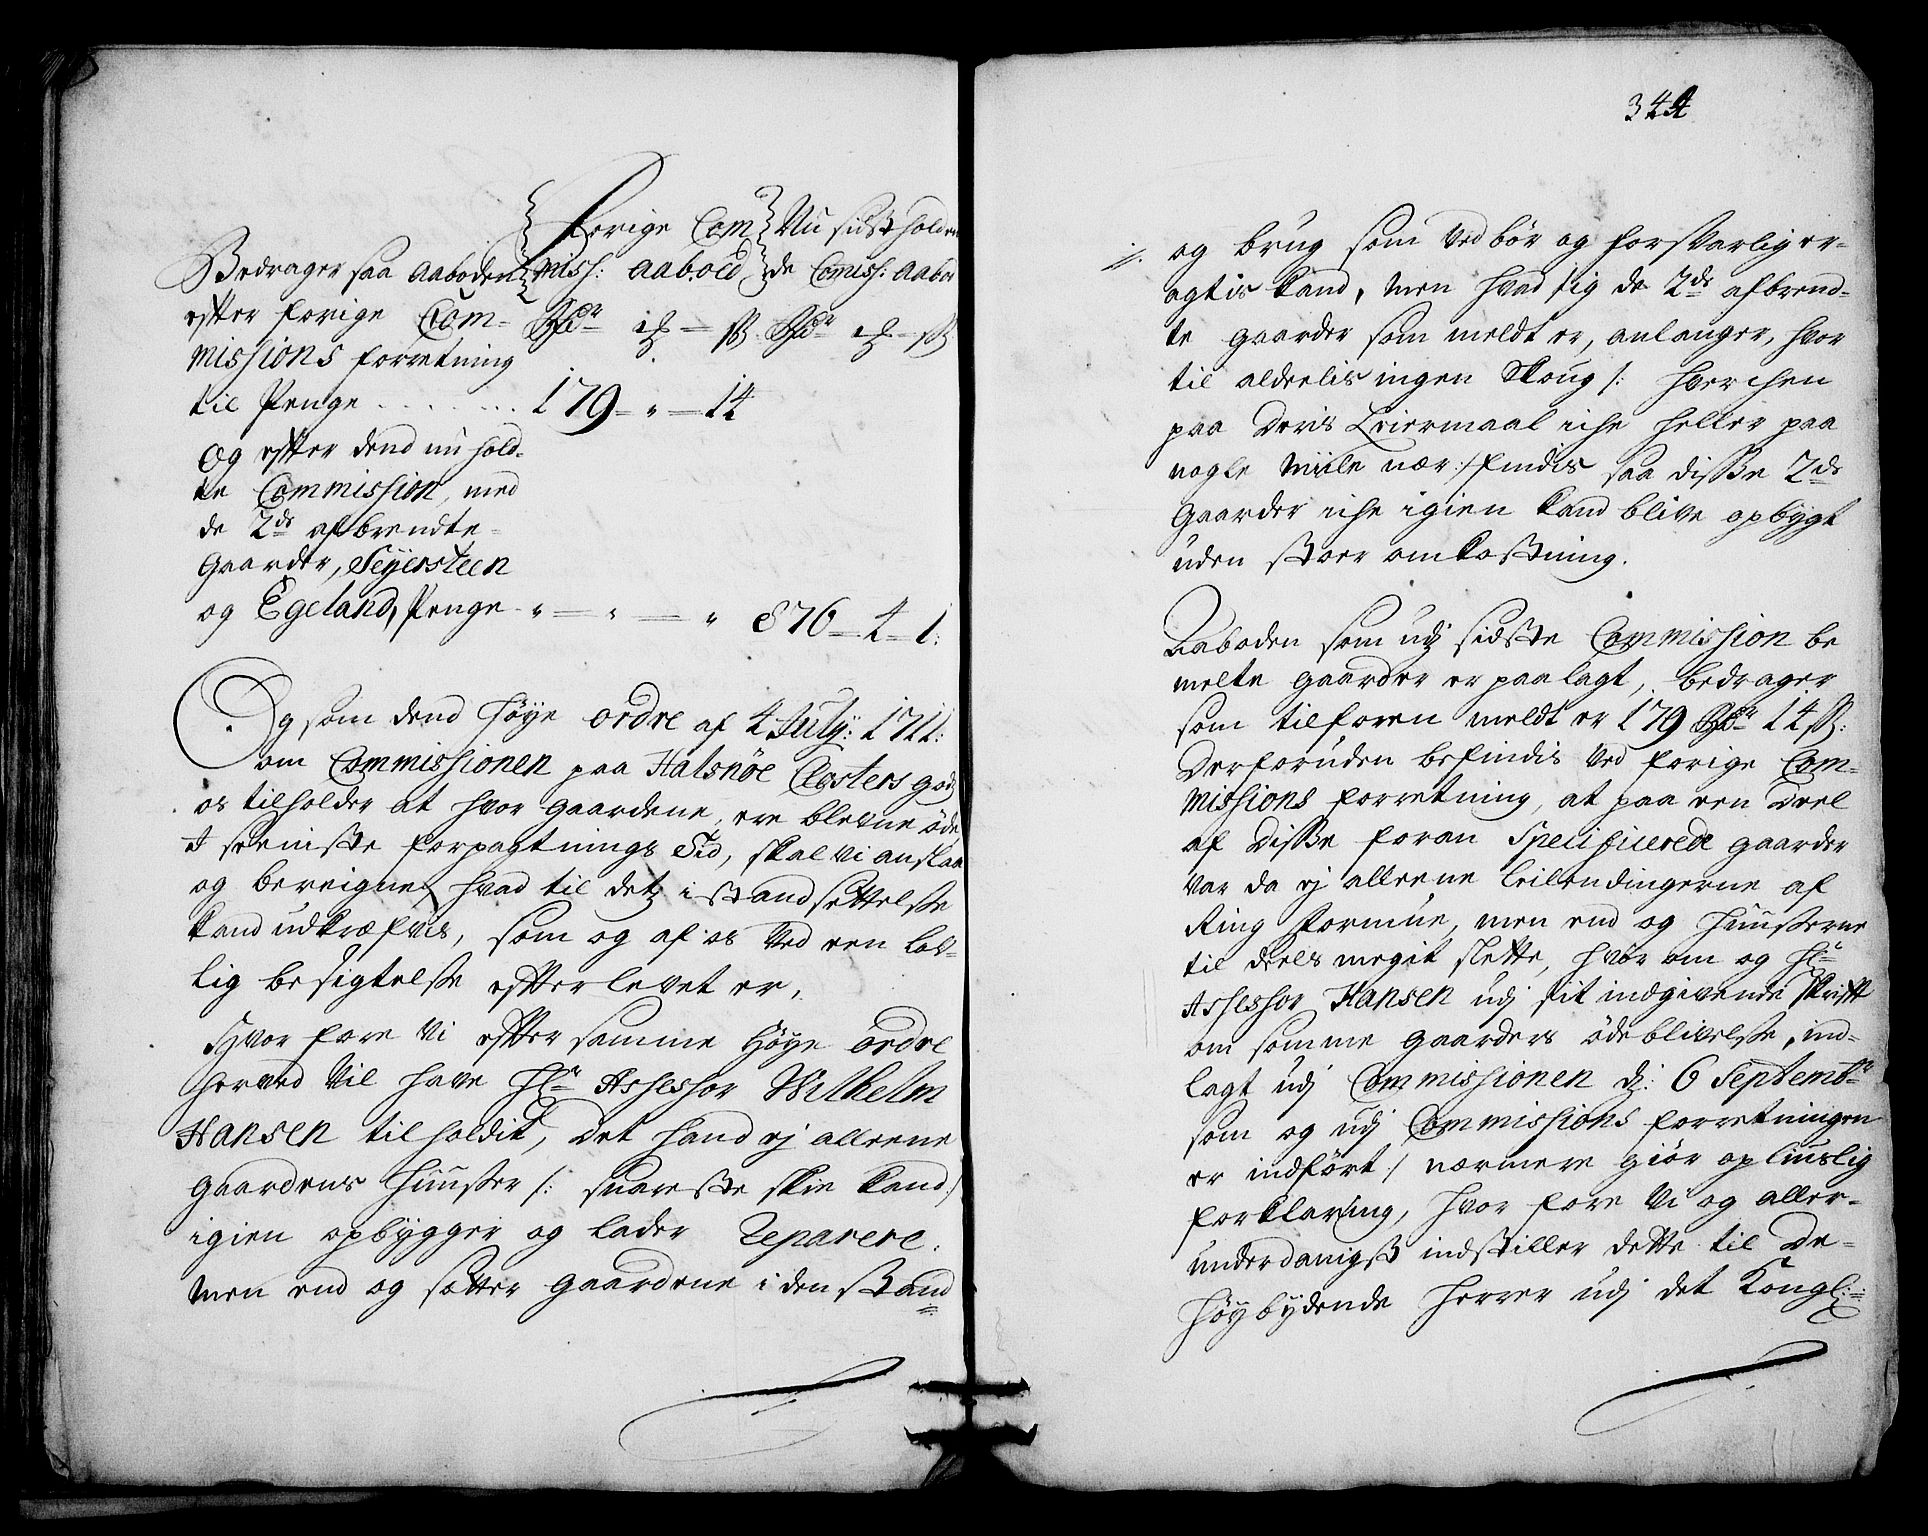 Forige Com Nu sidst holden
Bedrager saa aaboden miss: aaboed de Comiss: aaboe
efter forige Com- Rdr ɱ — ß. Rdr ɱ — ß
missions forretning
til Penge . . . . . . 179 — " — 14
Og efter dend nu hold-
te Commission, med
de 2de afbrendte
Gaarder, Seyersteen
og Egeland, Penge - " — " — " 876 — 4 — 1:
Og som dend høye ordre af 4 July: 1711:
om Commissionen paa Halsnöe Closters godz
os tilholder at hvor gaardene, ere blevne öde
I seeniste forpagtnings Tid, skal vi anslaae
og bereigne, hvad til detz istandsettelsse
kand udkræfvis, som og af os ved een lov-
lig besigtelsse efterlevet er,
Hvorfore vi efter samme høye ordre
herved vil have Hr Assessor Wilhelm
Hansen tilholdit, det hand ej alleene
gaardens huusser /: snareste skee kand :/
igien opbygger og lader Reparere,
men end og sætter gaardene i den stand
344
og brug som ved bør og forsvarlig er-
agtis kand, men hvad sig de 2de afbrend-
te gaarder som meldt er, anlanger, hvor
til aldeelis ingen Skoug /: hverchen
paa deris Leiermaal iche heller paa
nogle Miile nær :/ findis saa disse 2de
Gaarder iche igien kand blive opbygt
uden stoer omkostning.
Aaboden som udj sidste Commission be
melte gaarder er paalagt, bedrager
som tilforen meldt er 179 Rdr 14 ß:
Derforuden befindis ved forige Com-
missions forretning, at paa een Deel
af disse foran Specificerede gaarder
var da ej alleene leilendingerne af
Ring formue, men end og huusserne
til deels megit slette, hvor om og Hr
Assessor Hansen udj sit indgivende skrift
om somme gaarders ödeblivelsse, ind-
lagt udj Commissionen d: 6 Septembr
som og udj Commissions forretningen
er indført :/ nærmere giør opliuslig
forklaring, hvor fore vi og aller-
underdanigst indstiller dette til De-
høybydende herrer udj det Kongl: